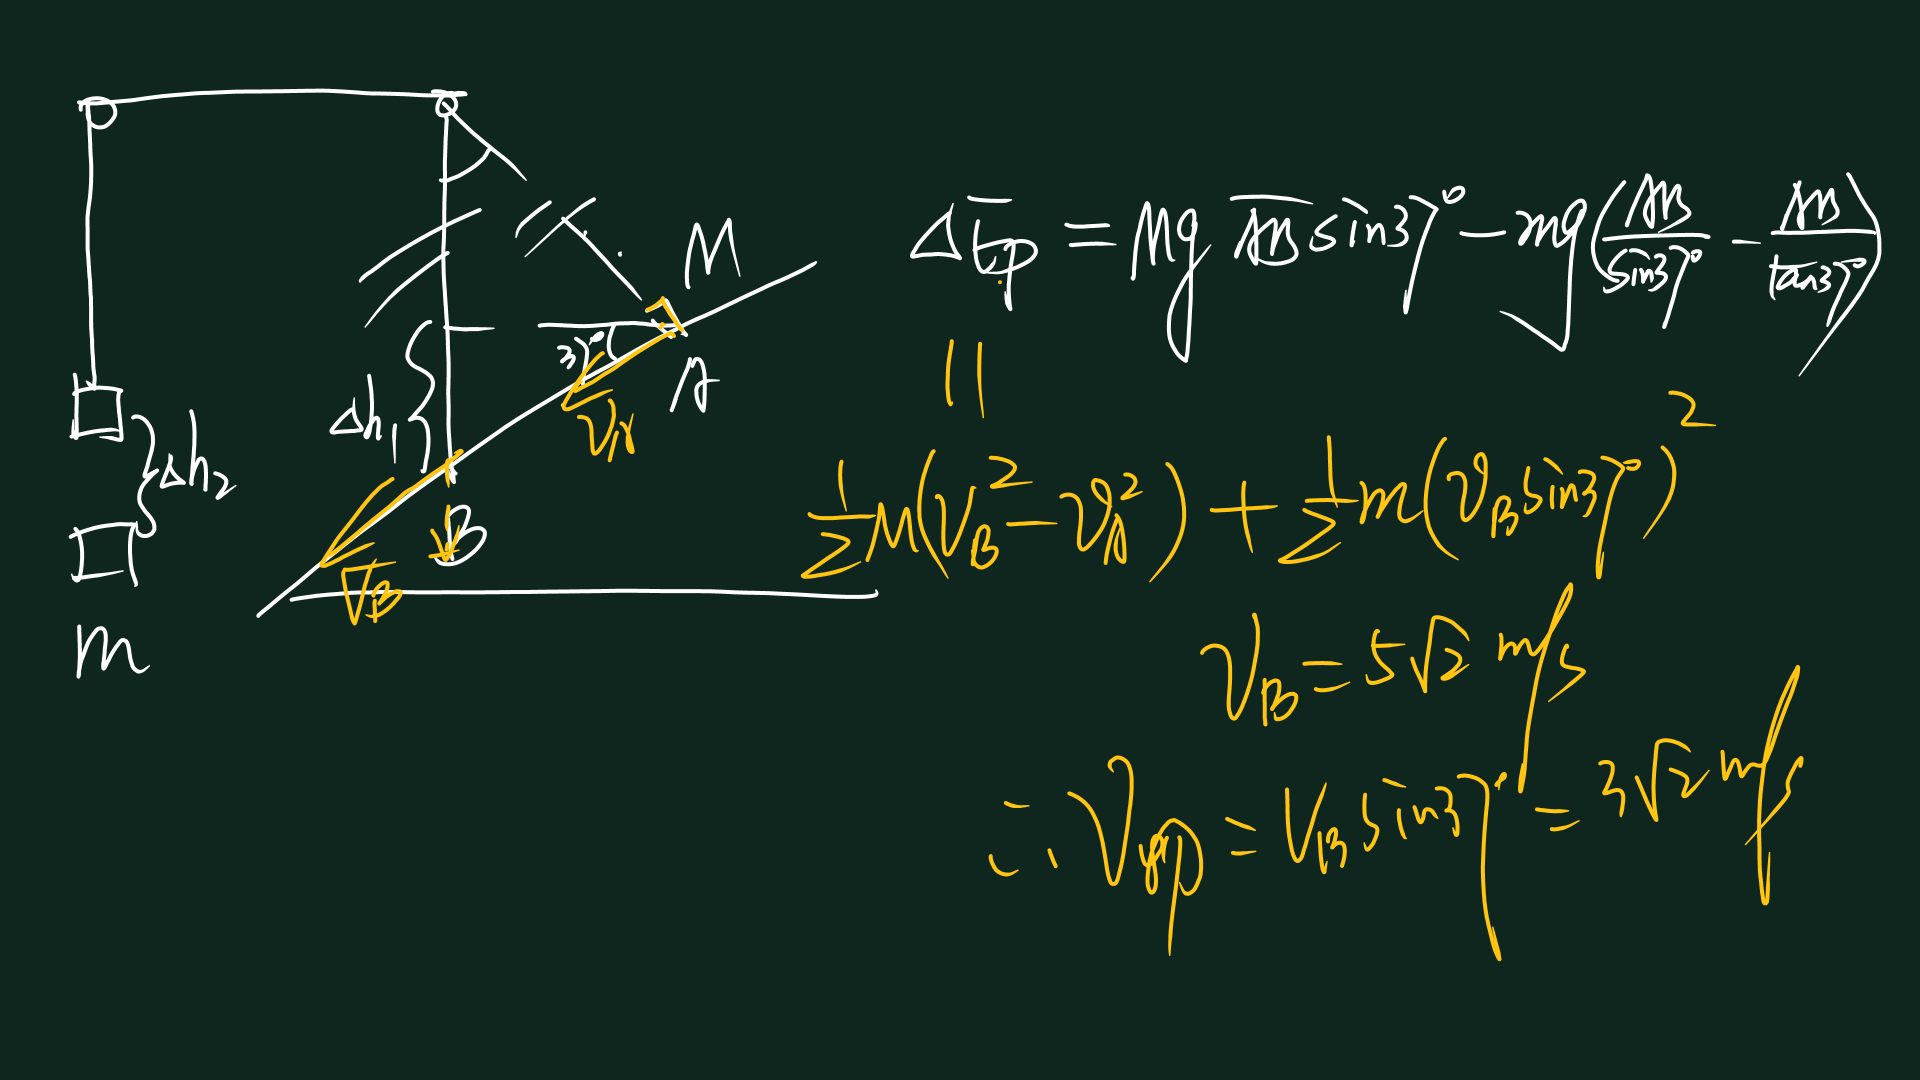 M
37°
A
v_A
Δh₁
Δh₂
B
v_B
m
ΔE_p = Mg AB sin37° − mg(AB/sin37° − AB/tan37°)
||
1/2 M(v_B² − v_A²) + 1/2 m(v_B sin37°)²
v_B = 5√2 m/s
∴ v = v_B sin37° = 3√2 m/s